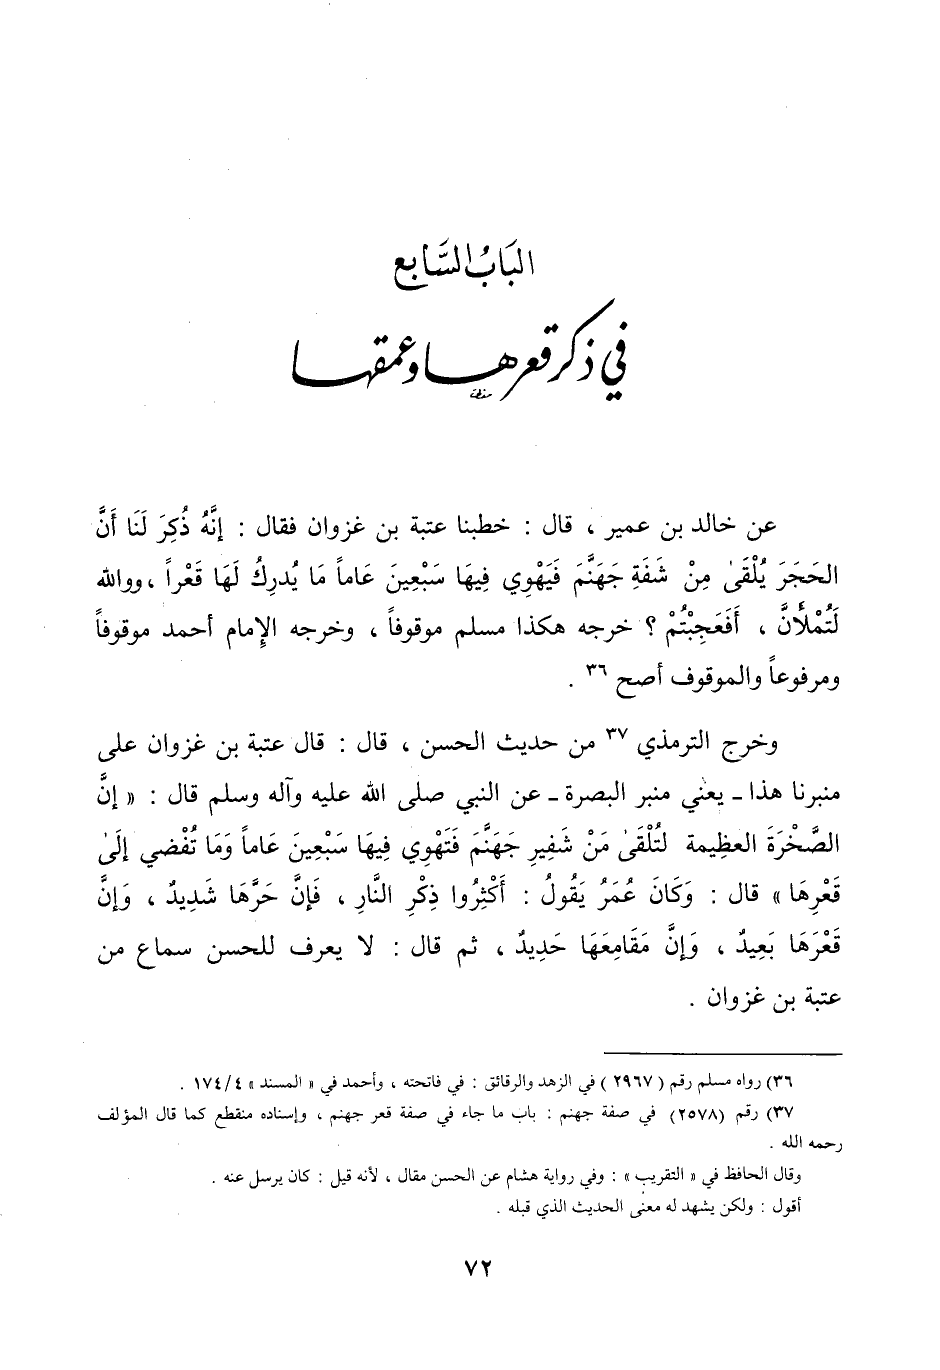 البَابُ السَّابع
في ذكر قعرها وعمقها
عن خالد بن عمير ، قال : خطبنا عتبة بن غزوان فقال : إنَّهُ ذُكِرَ لَنَا أنَّ
الحَجَرَ يُلْقَىٰ مِنْ شَفَةِ جَهَنَّمَ فَيَهْوِي فِيهَا سَبْعِينَ عَاماً مَا يُدرِكُ لَهَا قَعْراً ، ووالله
لَتُمْلَأنَّ ، أَفَعَجِبْتُمْ ؟ خرجه هكذا مسلم موقوفاً ، وخرجه الإمام أحمد موقوفاً
ومرفوعاً والموقوف أصح ٣٦ .
وخرج الترمذي ٣٧ من حديث الحسن ، قال : قال عتبة بن غزوان على
منبرنا هذا ـ يعني منبر البصرة ـ عن النبي صلى الله عليه وآله وسلم قال : « إنَّ
الصَّخْرَةَ العظِيمة لتُلْقَىٰ مَنْ شَفِيرِ جَهَنَّمَ فَتَهْوِي فِيهَا سَبْعِينَ عَاماً وَمَا تُفْضي إلَىٰ
قَعْرِهَا » قال : وَكَانَ عُمَرُ يَقُولُ : أَكْثِرُوا ذِكْرِ النَّارِ ، فَإنَّ حَرَّهَا شَدِيدٌ ، وَإنَّ
قَعْرَهَا بَعِيدٌ ، وَإنَّ مَقَامِعَهَا حَدِيدٌ ، ثم قال : لا يعرف للحسن سماع من
عتبة بن غزوان .
٣٦) رواه مسلم رقم ( ٢٩٦٧ ) في الزهد والرقائق : في فاتحته ، وأحمد في « المسند » ٤/١٧٤ .
٣٧) رقم (٢٥٧٨) في صفة جهنم : باب ما جاء في صفة قعر جهنم ، وإسناده منقطع كما قال المؤلف
رحمه الله .
وقال الحافظ في « التقريب » : وفي رواية هشام عن الحسن مقال ، لأنه قيل : كان يرسل عنه .
أقول : ولكن يشهد له معنى الحديث الذي قبله .
٧٢